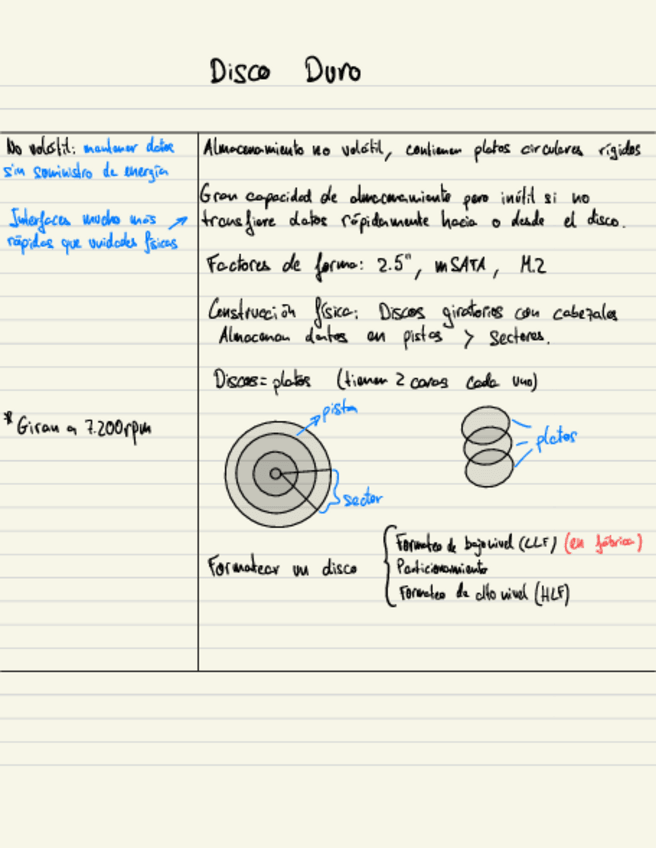 Disco Duro
No volátil: mantener datos
sin suministro de energía
Interfaces mucho más
rápidas que unidades físicas
* Giran a 7.200rpm
Almacenamiento no volátil, contienen platos circulares rígidos
Gran capacidad de almacenamiento pero inútil si no
transfiere datos rápidamente hacia o desde el disco.
Factores de forma: 2.5", mSATA, M.2
Construcción física: Discos giratorios con cabezales
Almacenan datos en pistas > sectores.
Discos = platos (tienen 2 caras cada uno)
pista
sector
platos
Formatear un disco
Formateo de bajo nivel (LLF) (en fábrica)
Particionamiento
Formateo de alto nivel (HLF)